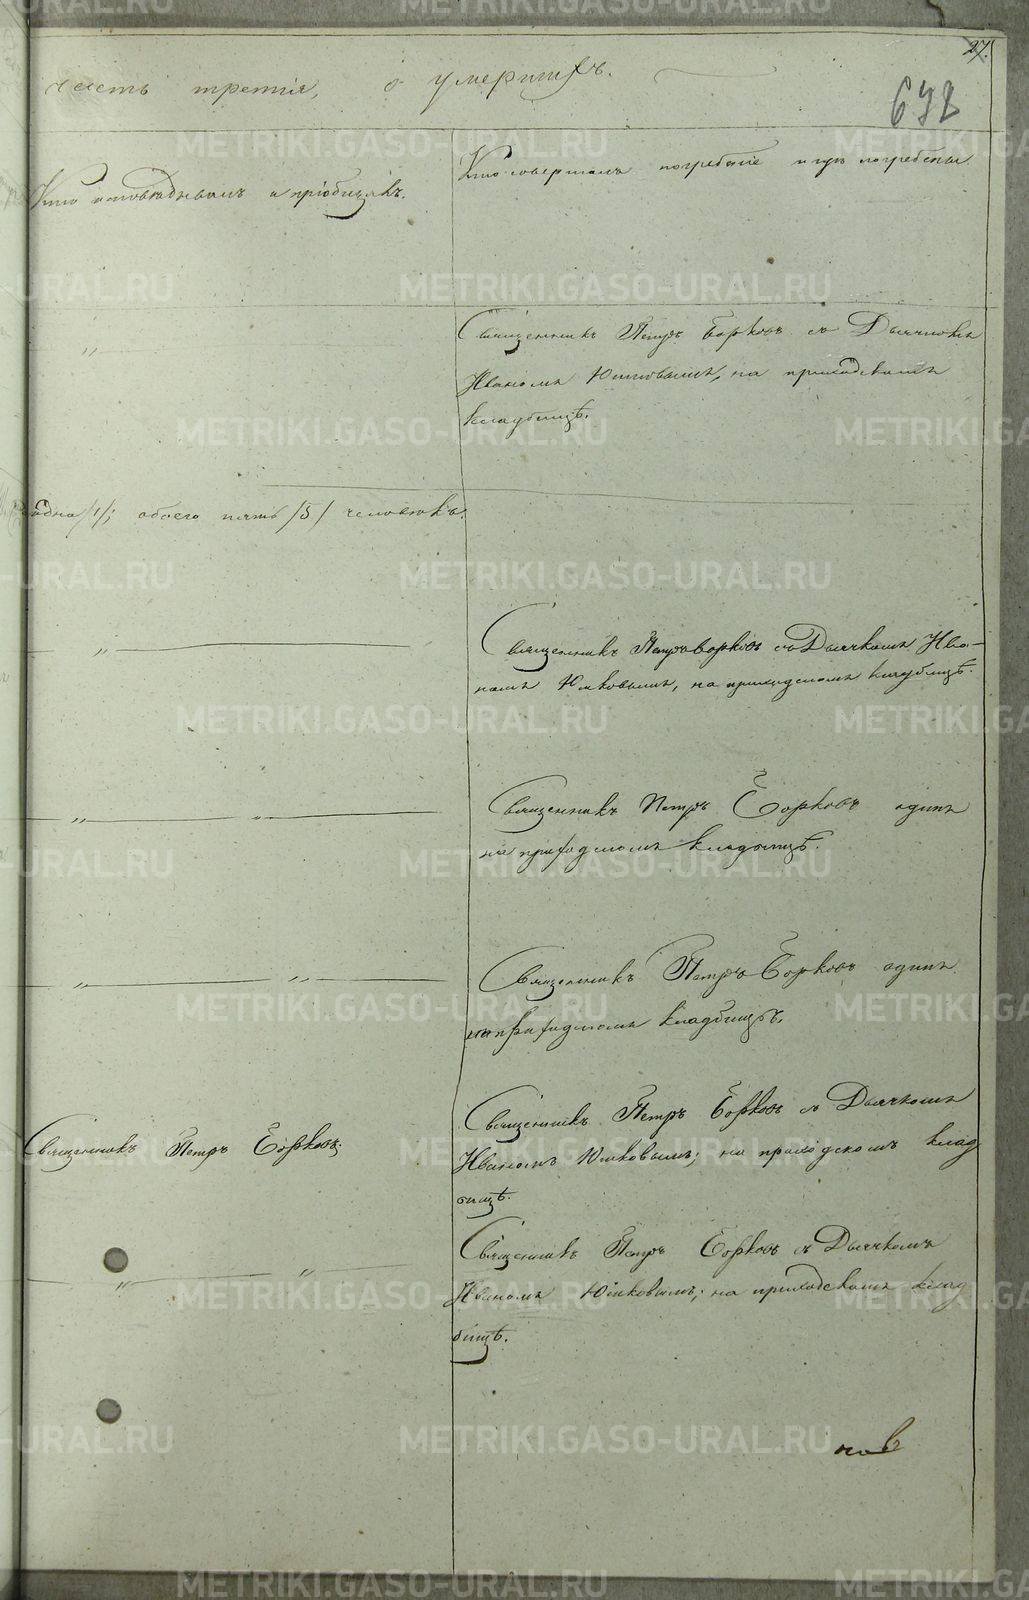 27.
часть третія, о умершихъ.
692
Кто исповѣдывалъ и пріобщалъ.
Кто совершалъ погребеніе и гдѣ погребены.
Священникъ Петръ Борковъ съ Дьячкомъ
Иваномъ Юшковымъ, на приходскомъ
кладбищѣ.
одна /1/; обоего пять /5/ человѣкъ.
Священникъ Петръ Борковъ съ Дьячкомъ Ива-
номъ Юшковымъ, на приходскомъ кладбищѣ.
Священникъ Петръ Борковъ одинъ
на приходскомъ кладбищѣ.
Священникъ Петръ Борковъ одинъ
на приходскомъ кладбищѣ.
Священникъ Петръ Борковъ.
Священникъ Петръ Борковъ съ Дьячкомъ
Иваномъ Юшковымъ; на приходскомъ клад
бищѣ.
Священникъ Петръ Борковъ съ Дьячкомъ
Иваномъ Юшковымъ; на приходскомъ клад
бищѣ.
ковъ
METRIKI.GASO-URAL.RU